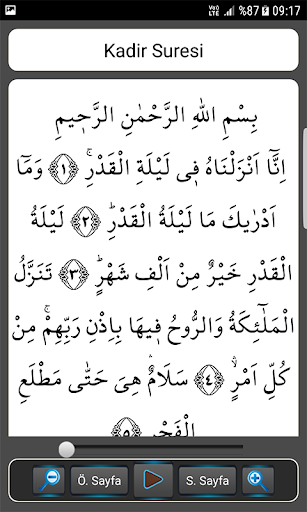 %87 09:17
Kadir Suresi
بِسْمِ اللهِ الرَّحْمٰنِ الرَّحٖيمِ
اِنَّٓا اَنْزَلْنَاهُ فٖى لَيْلَةِ الْقَدْرِۚ ﴿١﴾ وَمَٓا
اَدْرٰيكَ مَا لَيْلَةُ الْقَدْرِؕ ﴿٢﴾ لَيْلَةُ
الْقَدْرِ خَيْرٌ مِنْ اَلْفِ شَهْرٍؕ ﴿٣﴾ تَنَزَّلُ
الْمَلٰٓئِكَةُ وَالرُّوحُ فٖيهَا بِاِذْنِ رَبِّهِمْۚ مِنْ
كُلِّ اَمْرٍۙ ﴿٤﴾ سَلَامٌ هِىَ حَتّٰى مَطْلَعِ
الْفَجْرِ ﴿٥﴾
Ö. Sayfa S. Sayfa